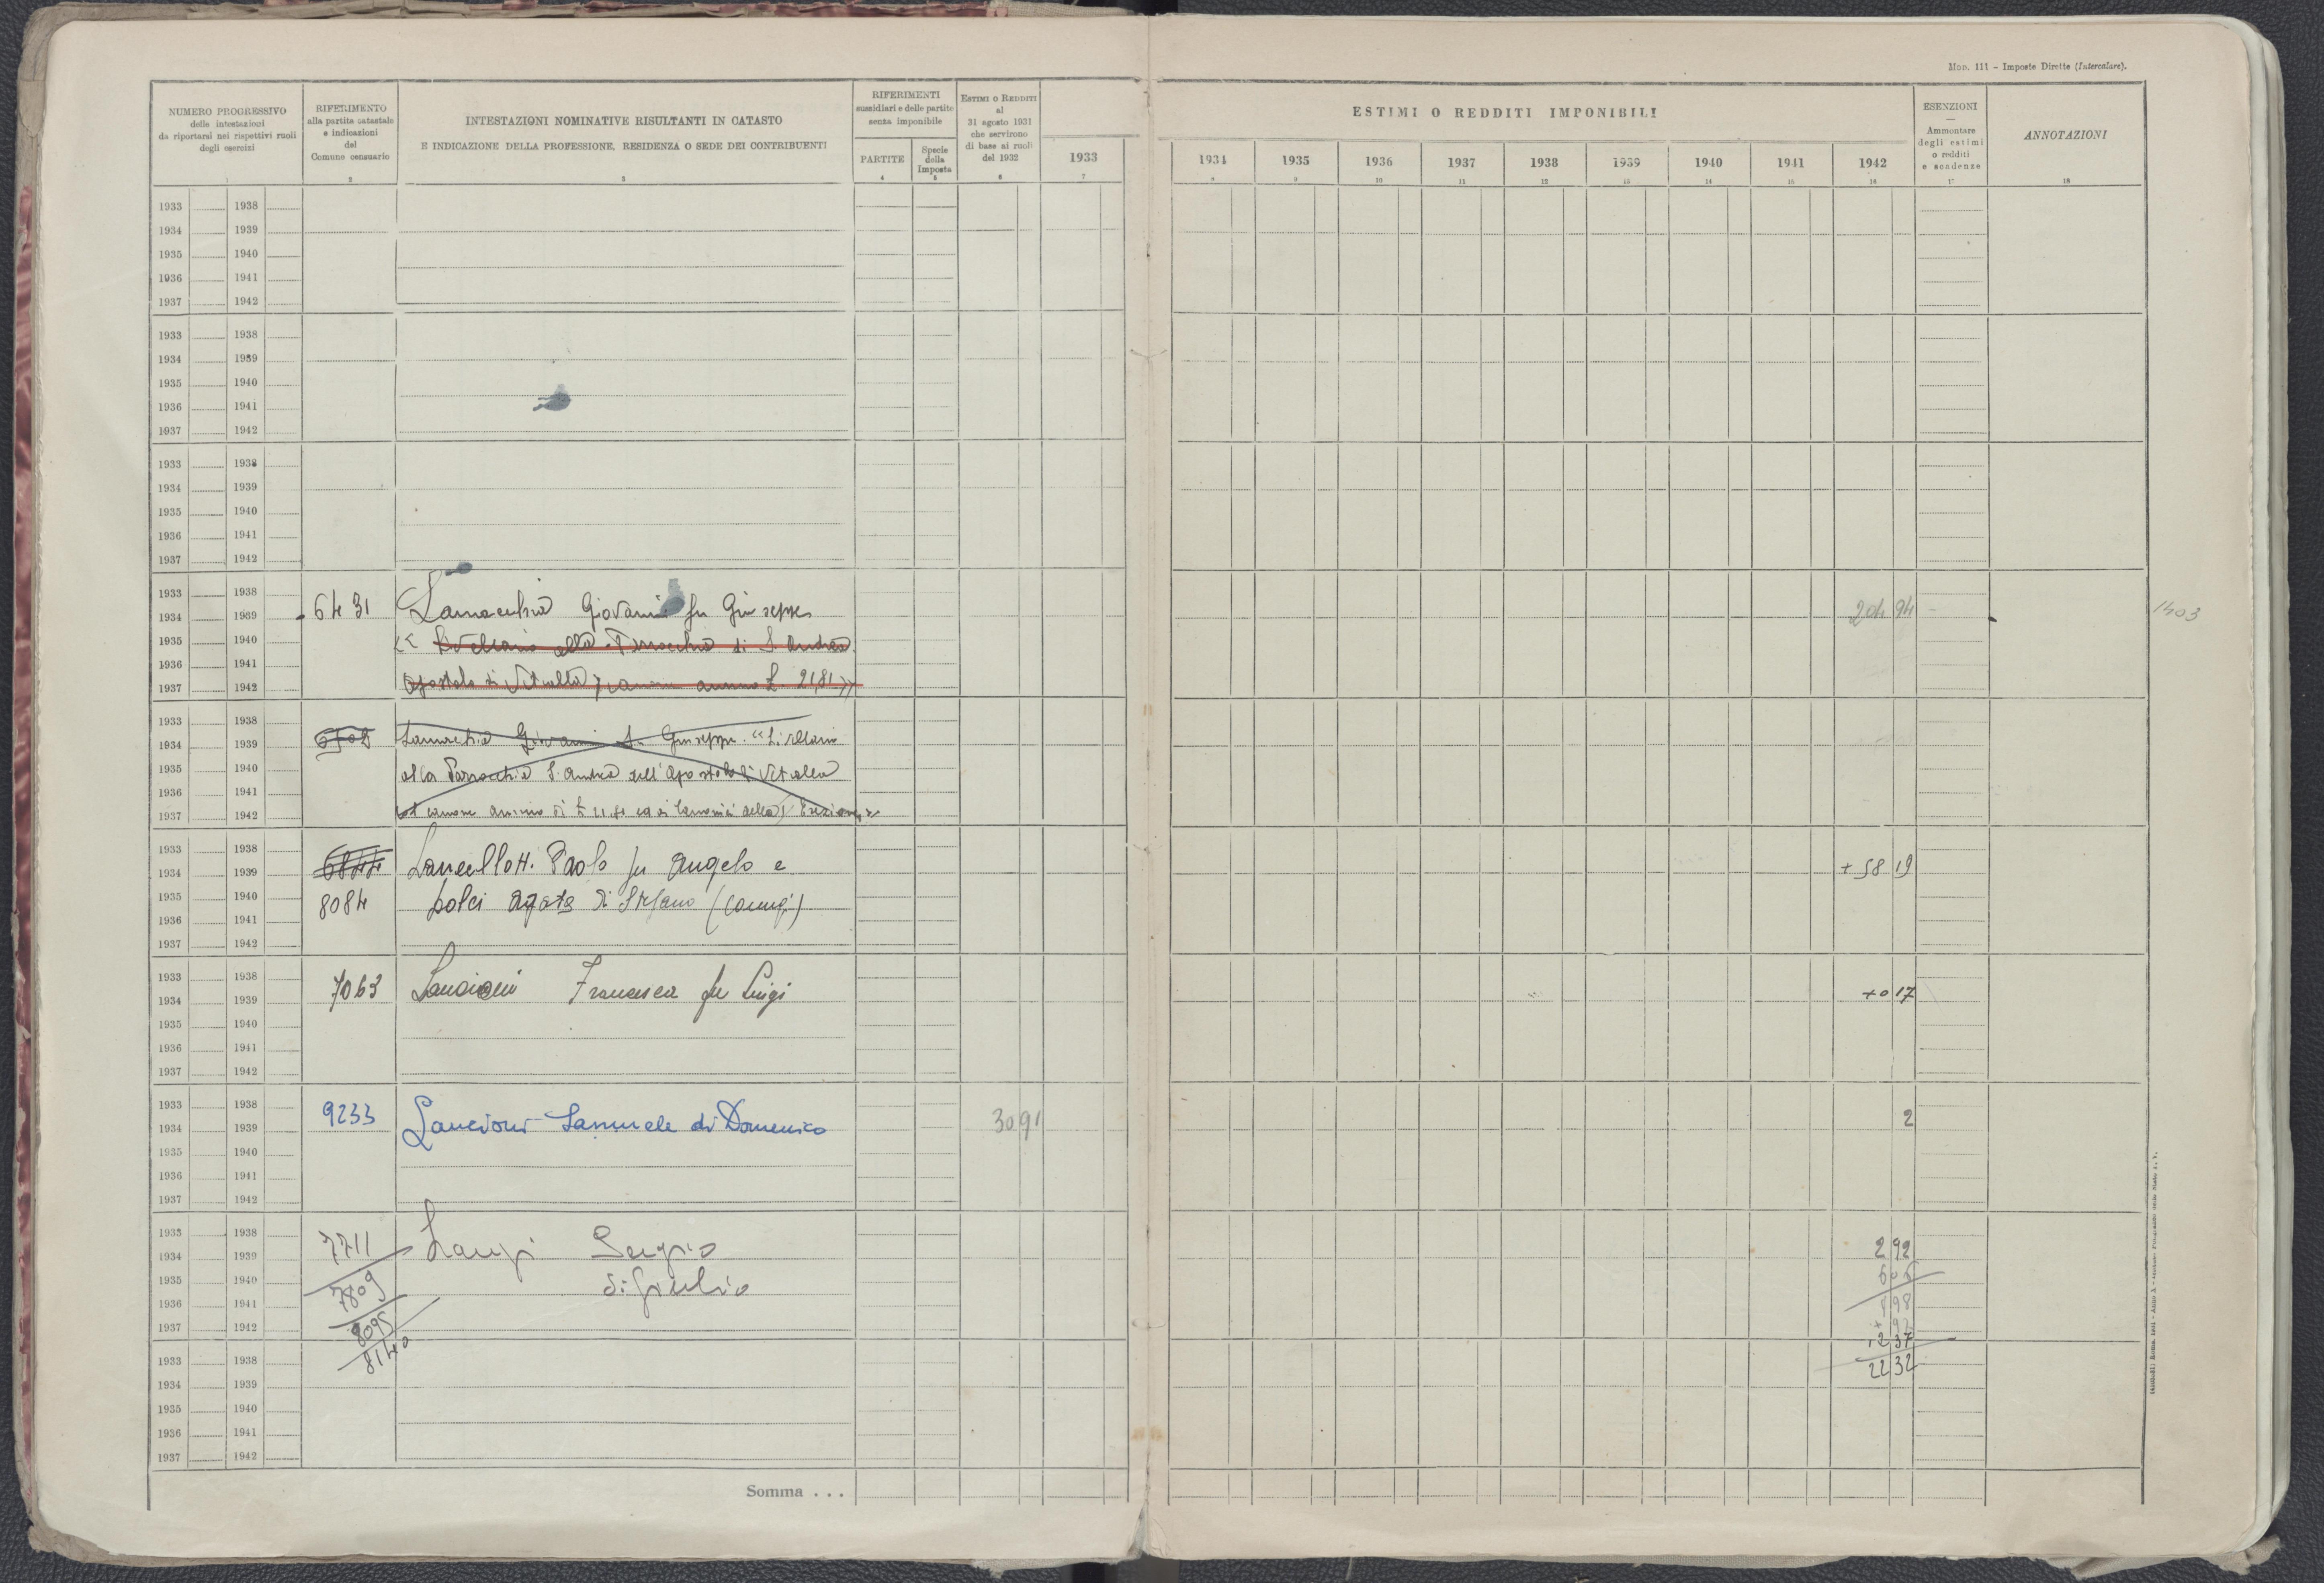 Mod. 111 - Imposte Dirette (Intercalare).
NUMERO PROGRESSIVO
delle intestazioni
da riportarsi nei rispettivi ruoli
degli esercizi
1
RIFERIMENTO
alla partita catastale
e indicazioni
del
Comune censuario
2
INTESTAZIONI NOMINATIVE RISULTANTI IN CATASTO
E INDICAZIONE DELLA PROFESSIONE, RESIDENZA O SEDE DEI CONTRIBUENTI
3
RIFERIMENTI
sussidiari e delle partite
senza imponibile
PARTITE
4
Specie
della
Imposta
5
ESTIMI O REDDITI
al
31 agosto 1931
che servirono
di base ai ruoli
del 1932
6
1933
7
ESTIMI O REDDITI IMPONIBILI
1934 1935 1936 1937 1938 1939 1940 1941 1942
8 9 10 11 12 13 14 15 16
ESENZIONI
Ammontare
degli estimi
o redditi
e scadenze
17
ANNOTAZIONI
18
1933 1938
1934 1939
1935 1940
1936 1941
1937 1942
1933 1938
1934 1939
1935 1940
1936 1941
1937 1942
1933 1938
1934 1939
1935 1940
1936 1941
1937 1942
1933 1938
1934 1939 6431 Lamacchia Giovanni fu Giuseppe 204 94 1403
1935 1940 « Livellario alla Parrocchia di S. Andrea
1936 1941
1937 1942 Apostolo di Vitralla, canone annuo £. 21,81 »
1933 1938
1934 1939 Lamachia Giovanni fu Giuseppe. "Livellario
1935 1940 alla Parrocchia S. Andrea dell'Apostolo di Vitralla
1936 1941
1937 1942 canone annuo di £ 21,81 ed ai Canonici della
1933 1938
1934 1939 Lancellotti Paolo fu Angelo e + 58 19
1935 1940 8084 Dolci Agata di Stefano (coniugi)
1936 1941
1937 1942
1933 1938
1934 1939 7063 Lancioni Francesca fu Luigi +0 17
1935 1940
1936 1941
1937 1942
1933 1938
1934 1939 9233 Lancioni Samuele di Domenico 30 91 2
1935 1940
1936 1941
1937 1942
1933 1938
1934 1939 7711 Langi Sergio 2 92
1935 1940 7809 di Giulio
1936 1941 8 98
1937 1942 8095
8140 22 32
1933 1938
1934 1939
1935 1940
1936 1941
1937 1942
Somma . . .